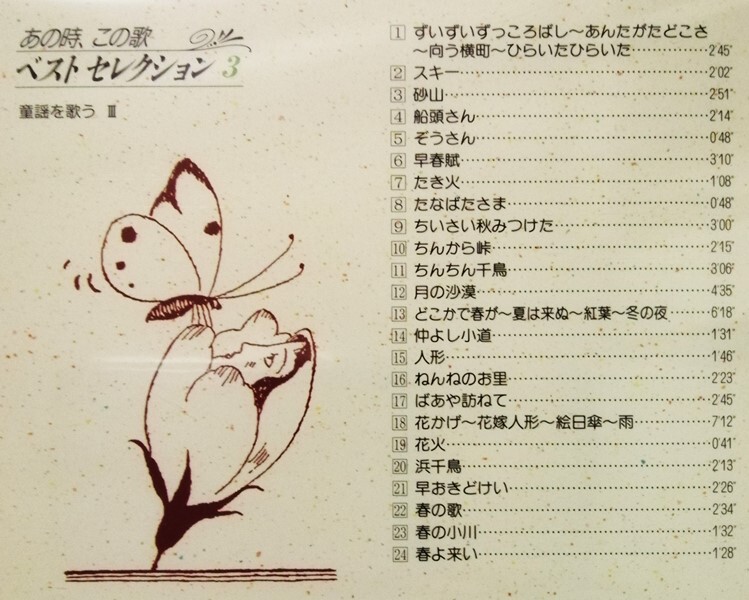 あの時、この歌
ベスト セレクション 3
童謡を歌う Ⅲ
1 ずいずいずっころばし〜あんたがたどこさ
〜向う横町〜ひらいたひらいた 2′45″
2 スキー 2′02″
3 砂山 2′51″
4 船頭さん 2′14″
5 ぞうさん 0′48″
6 早春賦 3′10″
7 たき火 1′08″
8 たなばたさま 0′48″
9 ちいさい秋みつけた 3′00″
10 ちんから峠 2′15″
11 ちんちん千鳥 3′06″
12 月の沙漠 4′35″
13 どこかで春が〜夏は来ぬ〜紅葉〜冬の夜 6′18″
14 仲よし小道 1′31″
15 人形 1′46″
16 ねんねのお里 2′23″
17 ばあや訪ねて 2′45″
18 花かげ〜花嫁人形〜絵日傘〜雨 7′12″
19 花火 0′41″
20 浜千鳥 2′13″
21 早おきどけい 2′26″
22 春の歌 2′34″
23 春の小川 1′32″
24 春よ来い 1′28″